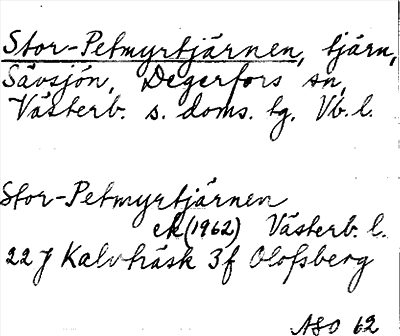 Stor-Petmyrtjärnen, tjärn,
Sävsjön, Degerfors sn,
Västerb. s. doms. tg. Vb. l.
Stor-Petmyrtjärnen
ek (1962) Västerb. l.
22 J Kalvträsk 3f Olofsberg
ASO 62